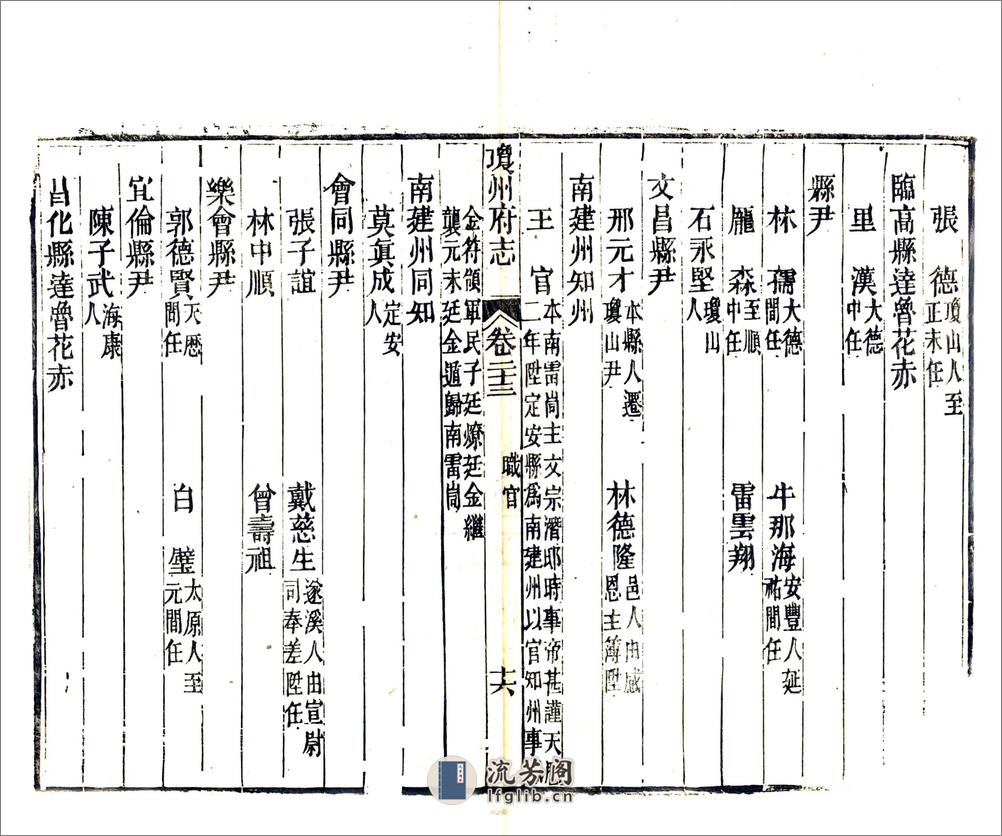 張　德瓊山人至正末任
臨高縣達魯花赤
里　漢大德中任
縣尹
林　孺大德間任　牛那海安豐人延祐間任
龐　森至順中任　雷雲翔
石永堅瓊山人
文昌縣尹
邢元才本縣人遷瓊山尹　林德隆邑人由感恩主簿陞
南建州知州
王　官本南雷峝主文宗潛邸時事帝甚謹天曆二年陞定安縣爲南建州以官知州事
瓊州府志　卷二十三　職官　十六
金符領軍民子廷燎廷金繼襲元末廷金遁歸南雷峝
南建州同知
莫眞成定安人
會同縣尹
張子誼　戴慈生遂溪人由宣尉司奉差陞任
林中順　曾壽祖
樂會縣尹
郭德賢天厯間任　白　璧太原人至元間任
宜倫縣尹
陳子武海康人
昌化縣達魯花赤
流芳阁
lfglib.cn